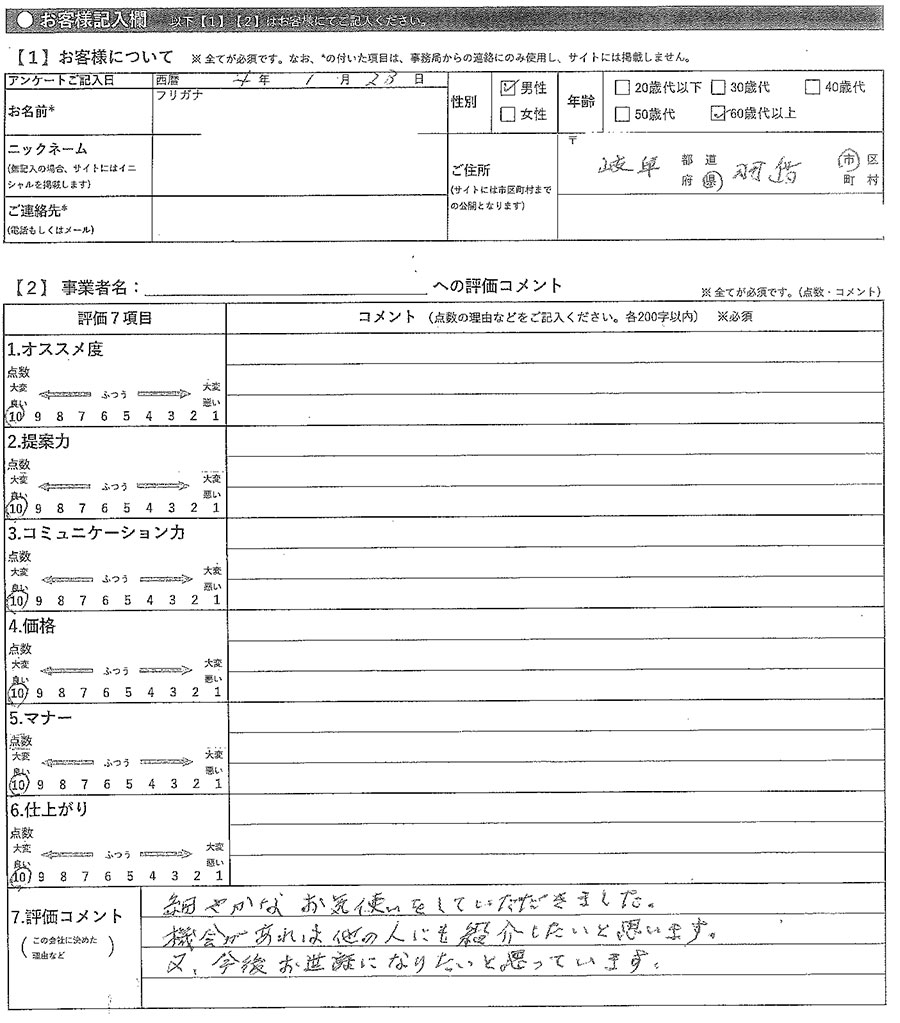 ● お客様記入欄 以下【1】【2】はお客様にてご記入ください。
【1】お客様について ※全てが必須です。なお、*の付いた項目は、事務局からの連絡にのみ使用し、サイトには掲載しません。
アンケートご記入日 西暦 4 年 1 月 23 日
お名前* フリガナ
性別 ☑男性 □女性
年齢 □20歳代以下 □30歳代 □40歳代
□50歳代 ☑60歳代以上
ニックネーム
(無記入の場合、サイトにはイニ
シャルを掲載します)
ご連絡先*
(電話もしくはメール)
ご住所
(サイトには市区町村まで
の公開となります)
〒
岐阜 都 道 府 県 羽島 市 区 町 村
【2】事業者名： への評価コメント
※全てが必須です。(点数・コメント)
評価7項目 コメント (点数の理由などをご記入ください。各200字以内) ※必須
1.オススメ度
点数
大変 ふつう 大変
良い 悪い
10 9 8 7 6 5 4 3 2 1
2.提案力
点数
大変 ふつう 大変
良い 悪い
10 9 8 7 6 5 4 3 2 1
3.コミュニケーション力
点数
大変 ふつう 大変
良い 悪い
10 9 8 7 6 5 4 3 2 1
4.価格
点数
大変 ふつう 大変
良い 悪い
10 9 8 7 6 5 4 3 2 1
5.マナー
点数
大変 ふつう 大変
良い 悪い
10 9 8 7 6 5 4 3 2 1
6.仕上がり
点数
大変 ふつう 大変
良い 悪い
10 9 8 7 6 5 4 3 2 1
7.評価コメント
(この会社に決めた
理由など)
細やかな お気使いをしていただきました。
機会があれば他の人にも紹介したいと思います。
又、今後お世話になりたいと思っています。